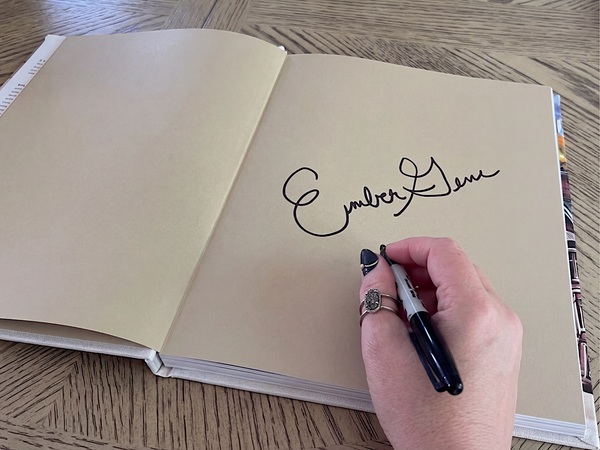 Ember Gene